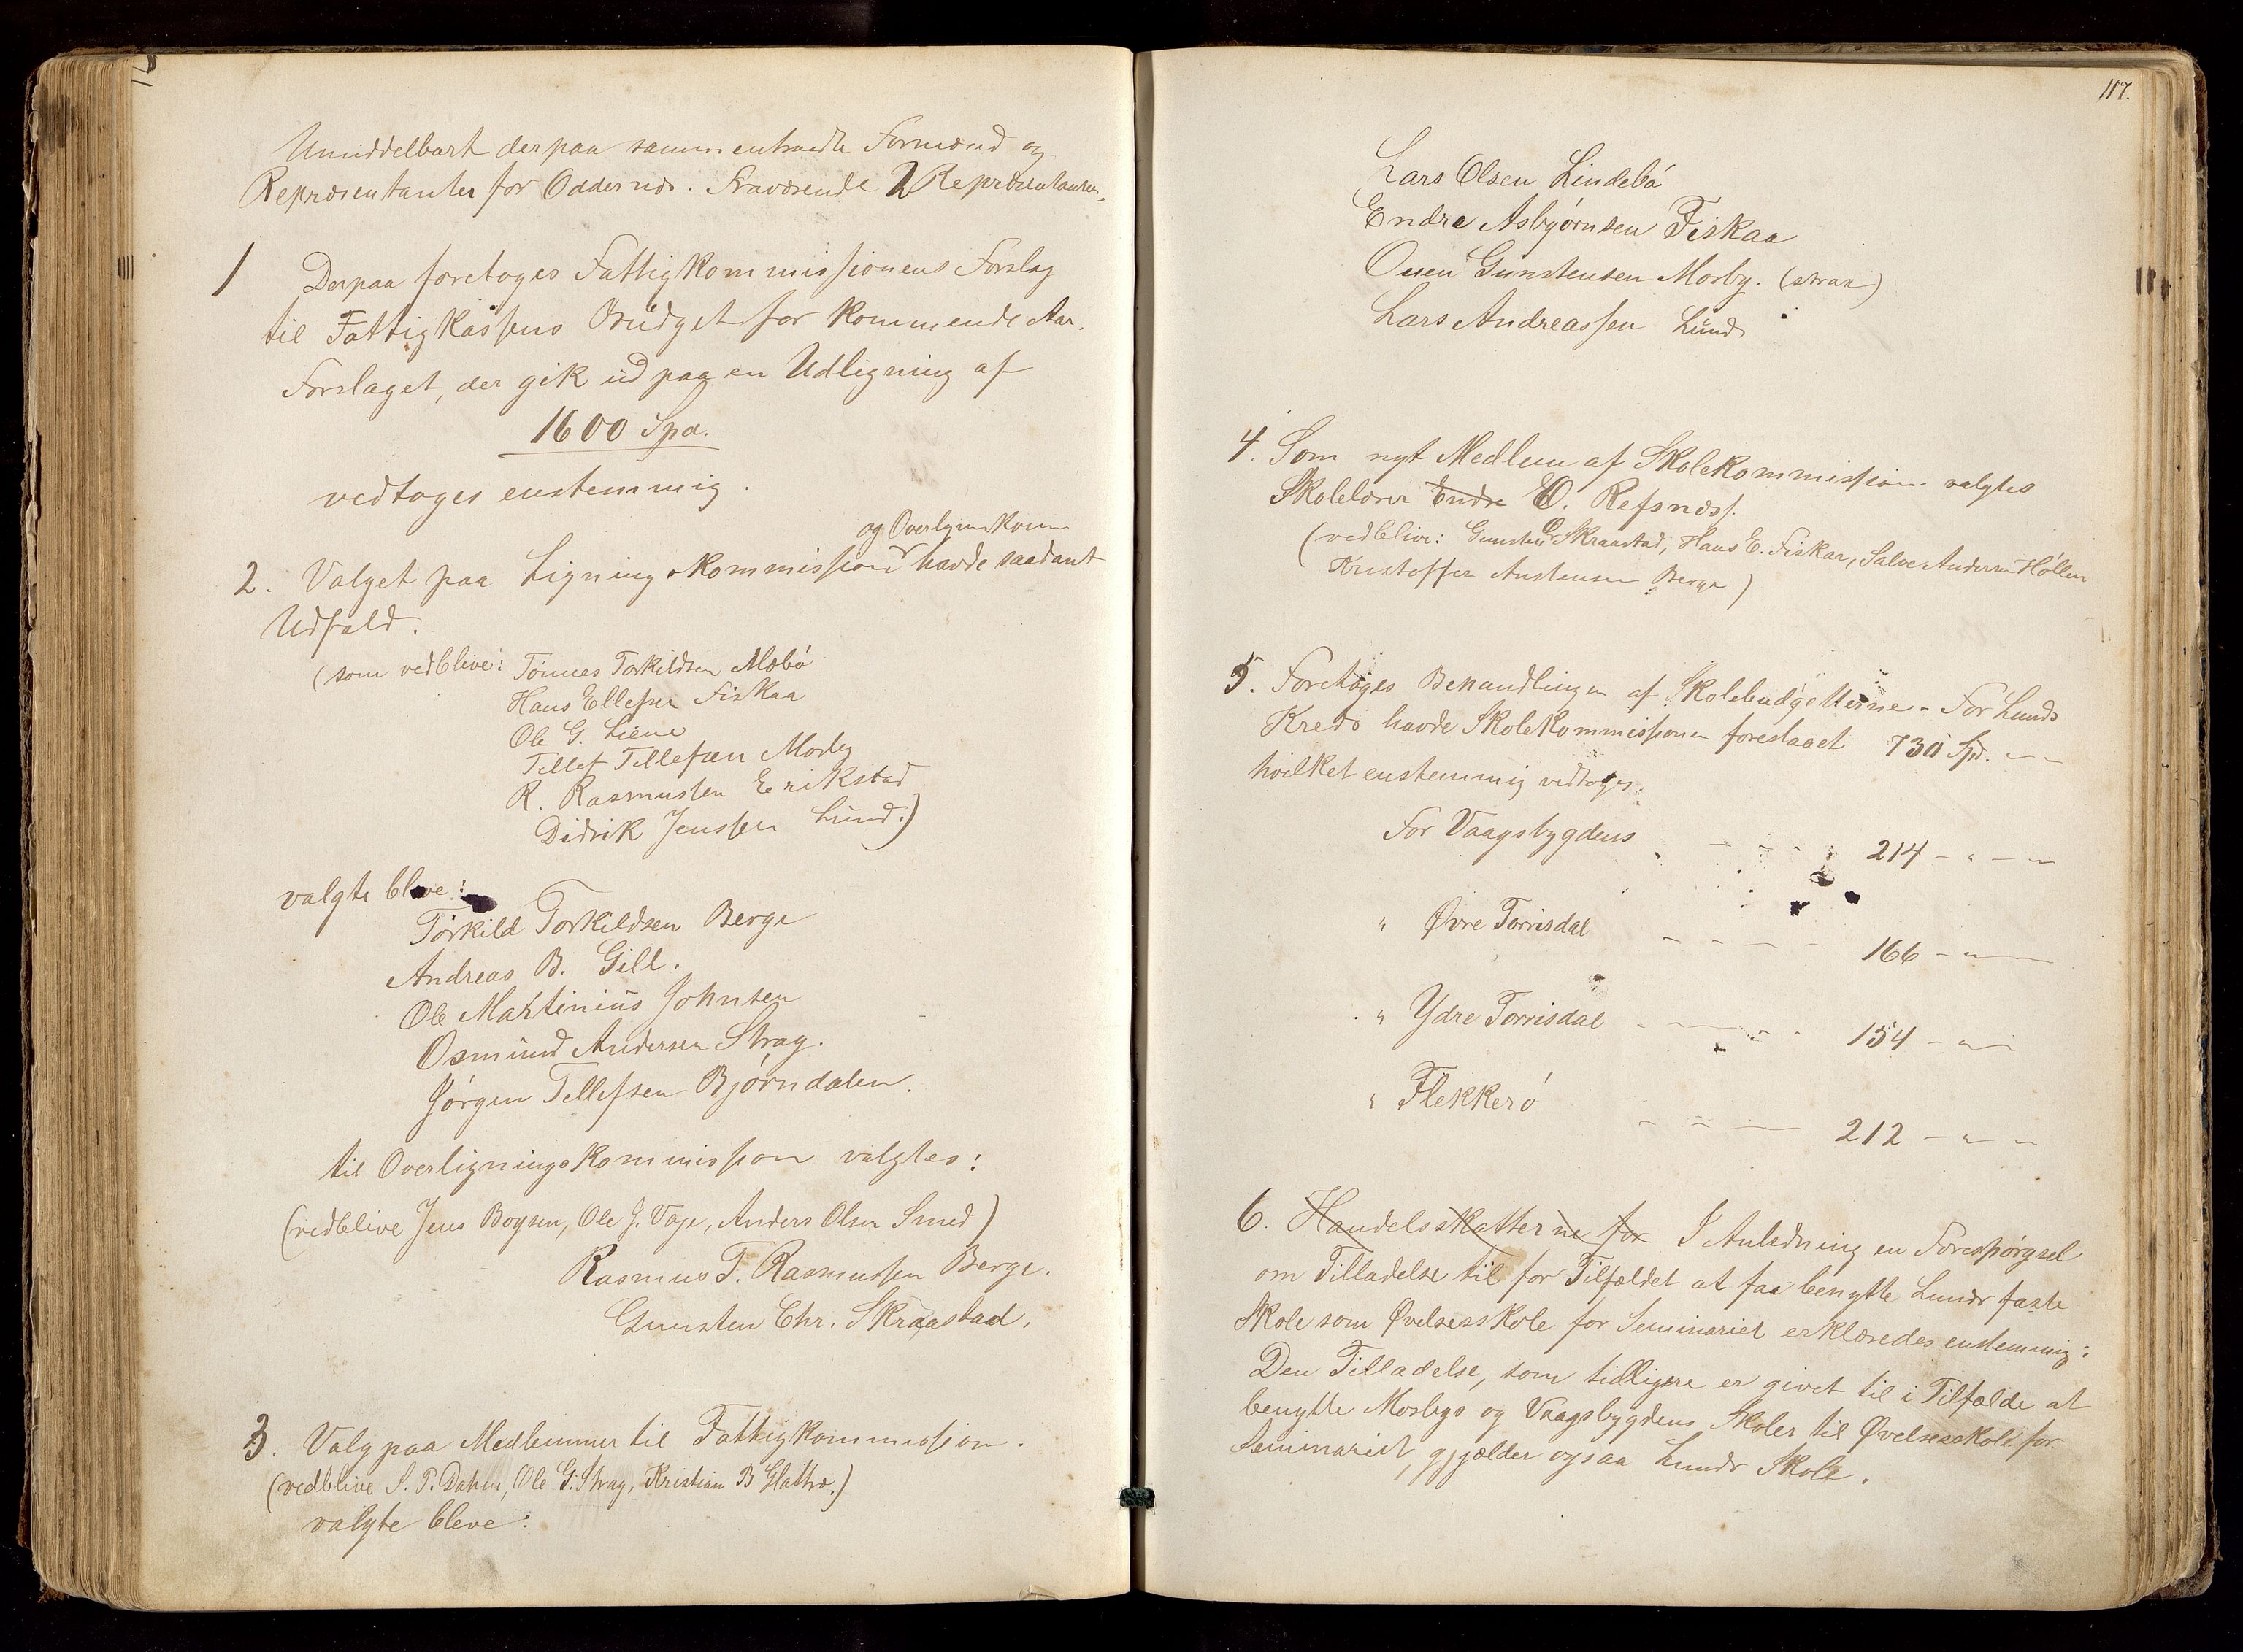 Umiddelbart derpaa sammentraadte Formænd og
Repræsentanter for Oddernæs. Fraværende 2 Repræsentanter.
1 Derpaa foretoges Fattigkommissionens Forslag
til Fattigkassens Budget for kommende Aar.
Forslaget, der gik ud paa en Udligning af
1600 Spd.
vedtoges enstemmig.
og Overlignskom
2. Valget paa Ligningskommission havde saadant
Udfald.
(som vedblive: Tönnes Torkildsen Mæbö
Hans Ellefsen Fiskaa
Ole G. Liene
Tellef Tellefsen Mosby
R. Rasmussen Erikstad
Didrik Jenssen Lund.)
valgte bleve:
Törkild Torkildsen Berge
Andreas B. Gill.
Ole Martinius Johnsen
Osmund Andersen Strag.
Jörgen Tellefsen Bjørndalen.
til Overligningskommission valgtes:
(vedblive Jens Boysen, Ole J. Voje, Anders Olsen Smed)
Rasmus T. Rasmussen Berge.
Gunsten Chr. Skraastad.
3. Valg paa Medlemmer til Fattigkommission.
(vedblive S. T. Dahm, Ole G. Strag, Kristian B Glattræ.)
valgte bleve:
117.
Lars Olsen Lindebö
Endre Asbjørnsen Fiskaa
Ouen Gunstensen Mosby. (strax)
Lars Andreassen Lund
4. Som nyt Medlem af Skolekommission valgtes
Skolelærer Endre O. Refsnæss.
(vedblive: Gunsten O Skraastad, Hans E. Fiskaa, Salve Andersen Höllen
Kristoffer Austensen Berge)
5. Foretoges Behandlingen af Skolebudgetterne - For Lunds
Kreds havde Skolekommissionen foreslaaet 730 Spd. - -
hvilket enstemmig vedtoges.
For Vaagsbygdens - - - 214 - " - -
" Øvre Torrisdal - - - - 166 - " -
" Ydre Torrisdal - - - - 154 - " -
" Flekkerö - - - 212 - " -
6. Handelsskatterne for I Anledning en Forespørgsel
om Tilladelse til for Tilfældet at faa benytte Lunds faste
Skole som Øvelsesskole for Seminariet erklæredes enstemmig:
Den Tilladelse, som tidligere er givet til i Tilfælde at
benytte Mosbys og Vaagsbygdens Skoler til Øvelsesskole for
Seminariet, gjælder ogsaa Lunds Skole.